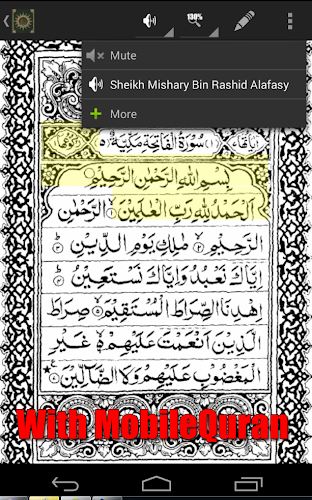 130%
Mute
Sheikh Mishary Bin Rashid Alafasy
More
سُوْرَةُ الْفَاتِحَةِ مَكِّيَّةٌ
بِسْمِ اللهِ الرَّحْمٰنِ الرَّحِيْمِ
اَلْحَمْدُ لِلّٰهِ رَبِّ الْعٰلَمِيْنَ ۝١ الرَّحْمٰنِ
الرَّحِيْمِ ۝٢ مٰلِكِ يَوْمِ الدِّيْنِ ۝٣
اِيَّاكَ نَعْبُدُ وَاِيَّاكَ نَسْتَعِيْنُ ۝٤
اِهْدِنَا الصِّرَاطَ الْمُسْتَقِيْمَ ۝٥ صِرَاطَ
الَّذِيْنَ اَنْعَمْتَ عَلَيْهِمْ ۝٦ غَيْرِ
الْمَغْضُوْبِ عَلَيْهِمْ وَلَا الضَّآلِّيْنَ ۝٧
With MobileQuran